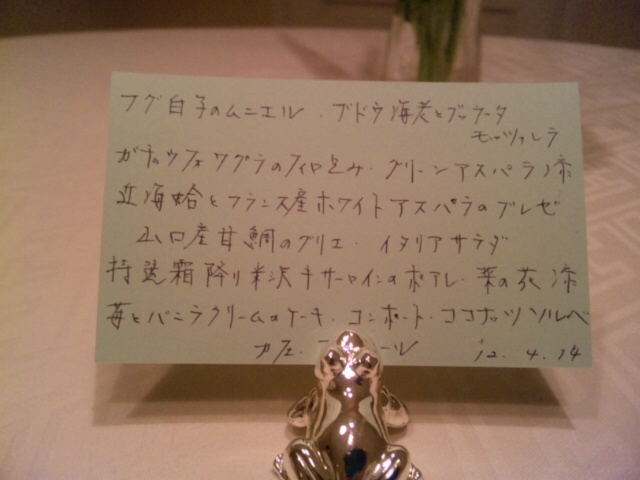 フグ白子のムニエル . ブドウ海老とブッラータ
モッツァレラ
ガチョウフォワグラのフィロ包み . グリーンアスパラ添
近海蛤とフランス産ホワイトアスパラのブレゼ
山口産甘鯛のグリエ . イタリアサラダ
特選霜降り米沢牛サーロインのポアレ . 菜の花添
苺とバニラクリームのケーキ . コンポート . ココナッツソルベ
カフェ . ール '12. 4. 14